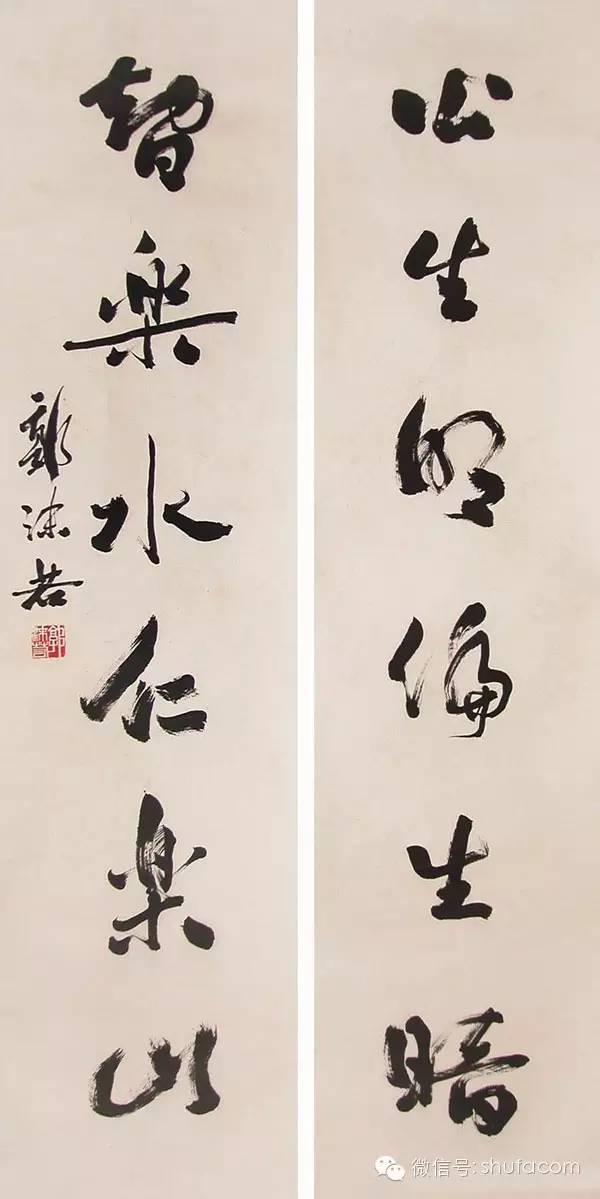 公生明偏生暗
智樂水仁樂山
郭沫若
郭沫若
微信号:shufacom